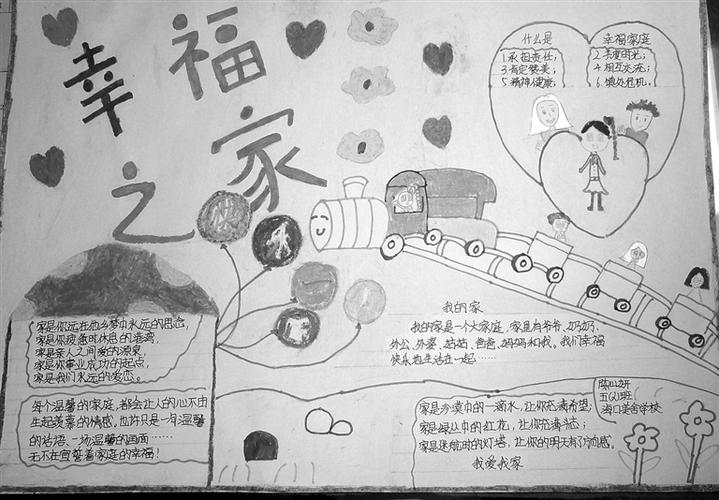 幸福
之家
什么是 幸福家庭
1.承担责任；
3.肯定赞美；
5.精神健康；
4.相互交流；
6.慎处危机。
快
乐
一
我的家
我的家是一个大家庭，家里有爷爷、奶奶、
外公、外婆、姑姑、爸爸、妈妈和我。我们幸福
快乐地生活在一起……
家是你远在他乡梦中永远的思念，
家是你疲惫时休息的港湾，
家是亲人之间爱的源泉，
家是你事业成功的起点，
家是我们永远的爱恋。
每个温馨的家庭，都会让人的心不由
生起羡慕的情感，也许只是一句温馨
的话语、一场温馨的画面……
无不在宣誓着家庭的幸福！
家是沙漠中的一滴水，让你充满希望；
家是绿丛中的红花，让你充满斗志；
家是迷航时的灯塔，让你的明天有了方向感。
我爱我家
海口美舍学校